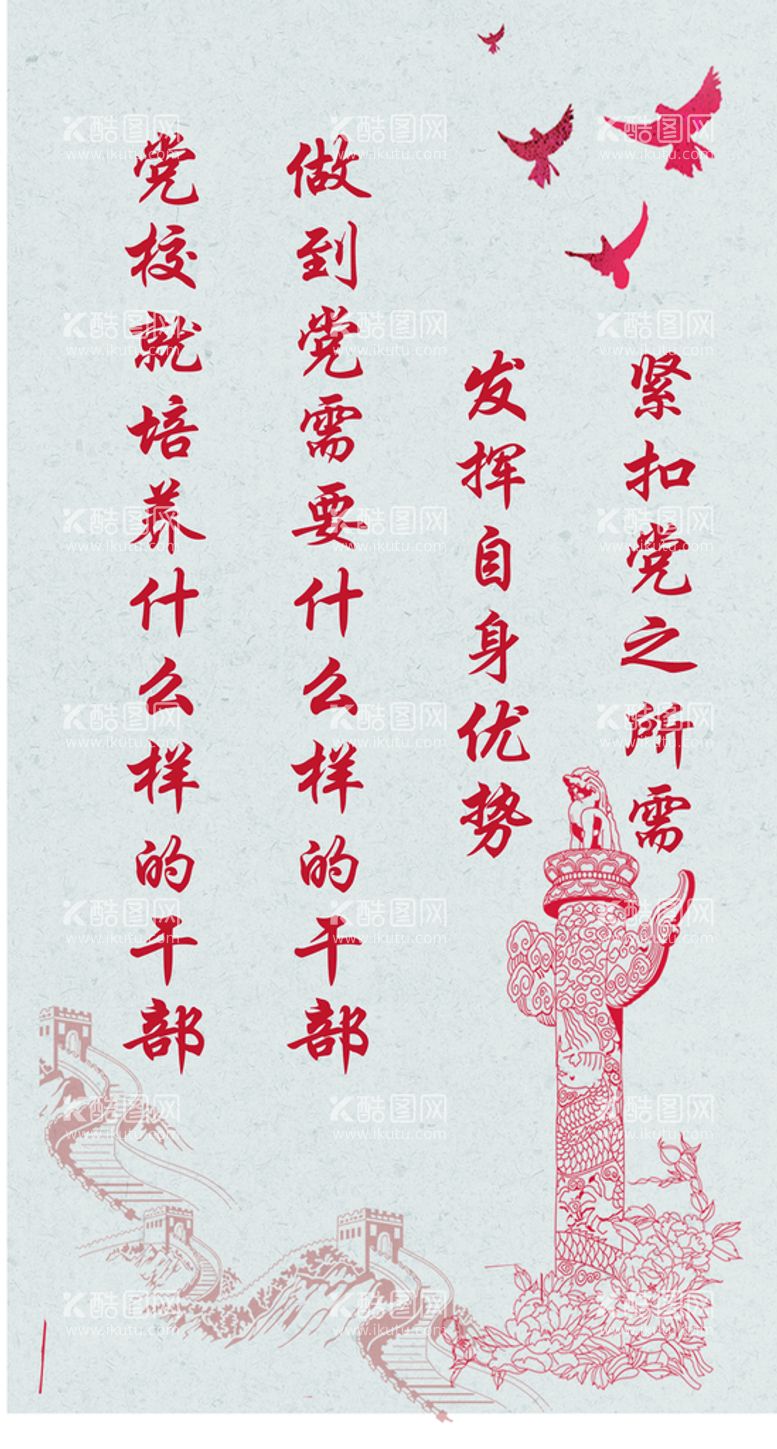 紧扣党之所需
发挥自身优势
做到党需要什么样的干部
党校就培养什么样的干部
酷图网
www.ikutu.com